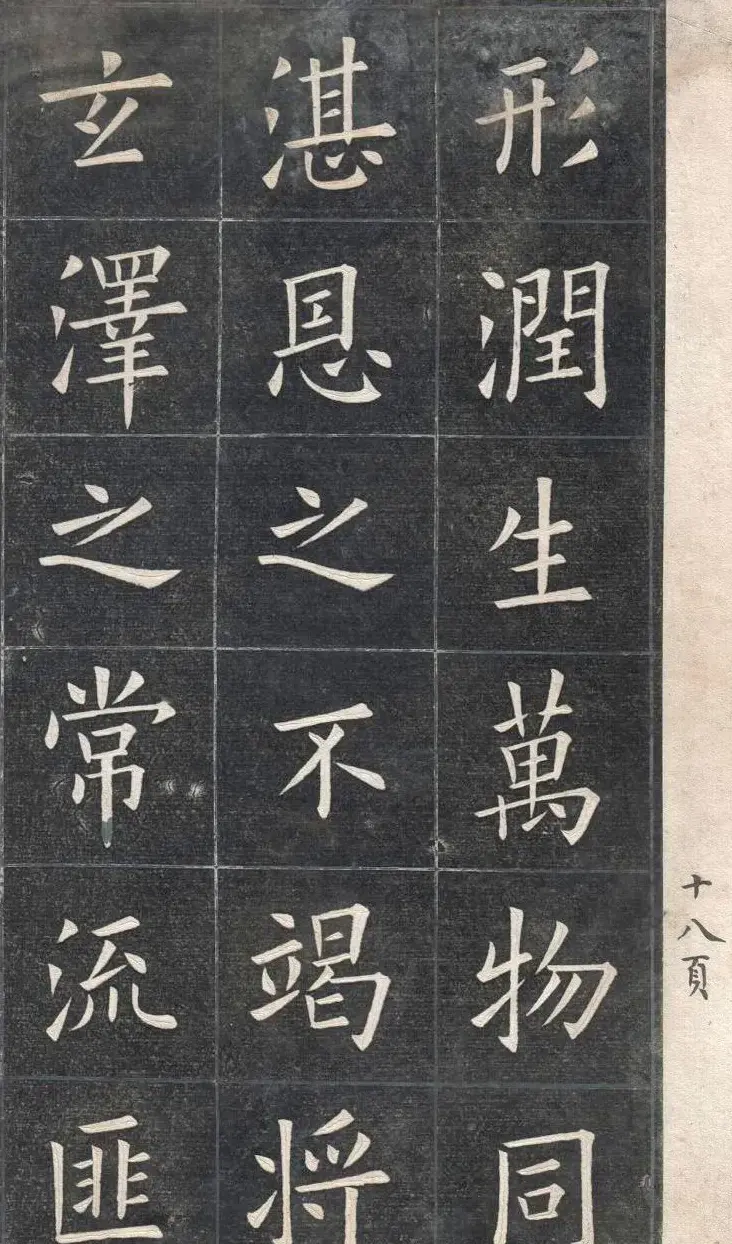 十八頁
形潤生萬物同
湛恩之不竭將
玄澤之常流匪